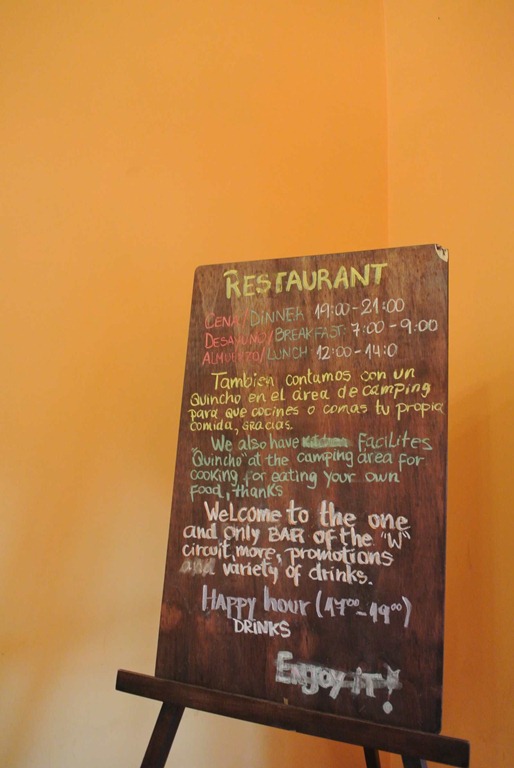 RESTAURANT
CENA/DINNER 19:00-21:00
DESAYUNO/BREAKFAST: 7:00-9:00
ALMUERZO/LUNCH 12:00-14:0
Tambien contamos con un
Quincho en el área de camping
para que cocines o comas tu propia
comida, gracias.
We also have kitchen Facilites
"Quincho" at the camping area for
cooking, for eating your own
food, thanks
Welcome to the one
and only BAR of the "W"
circuit, more, promotions
and variety of drinks.
Happy hour (17⁰⁰-19⁰⁰)
DRINKS
Enjoy it!